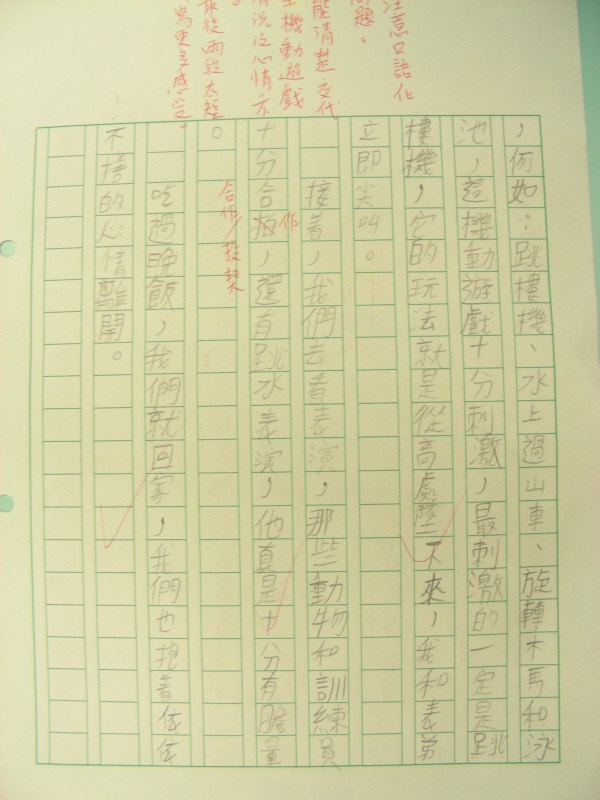 注意口語化
問題。
能清楚交代
機動遊戲
情況及心情
兩段太短
寫更多感受。
，例如：跳樓機、水上過山車、旋轉木馬和泳
池，這機動遊戲十分刺激，最刺激的一定是跳
樓機，它的玩法就是從高處墮下來，我和表弟
立即尖叫。
接着，我們去看表演，那些動物和訓練員
作
十分合拍，還有跳水表演，他真是十分有膽量
合作／投契
。
吃過晚飯，我們就回家，我們也抱着依依
不捨的心情離開。